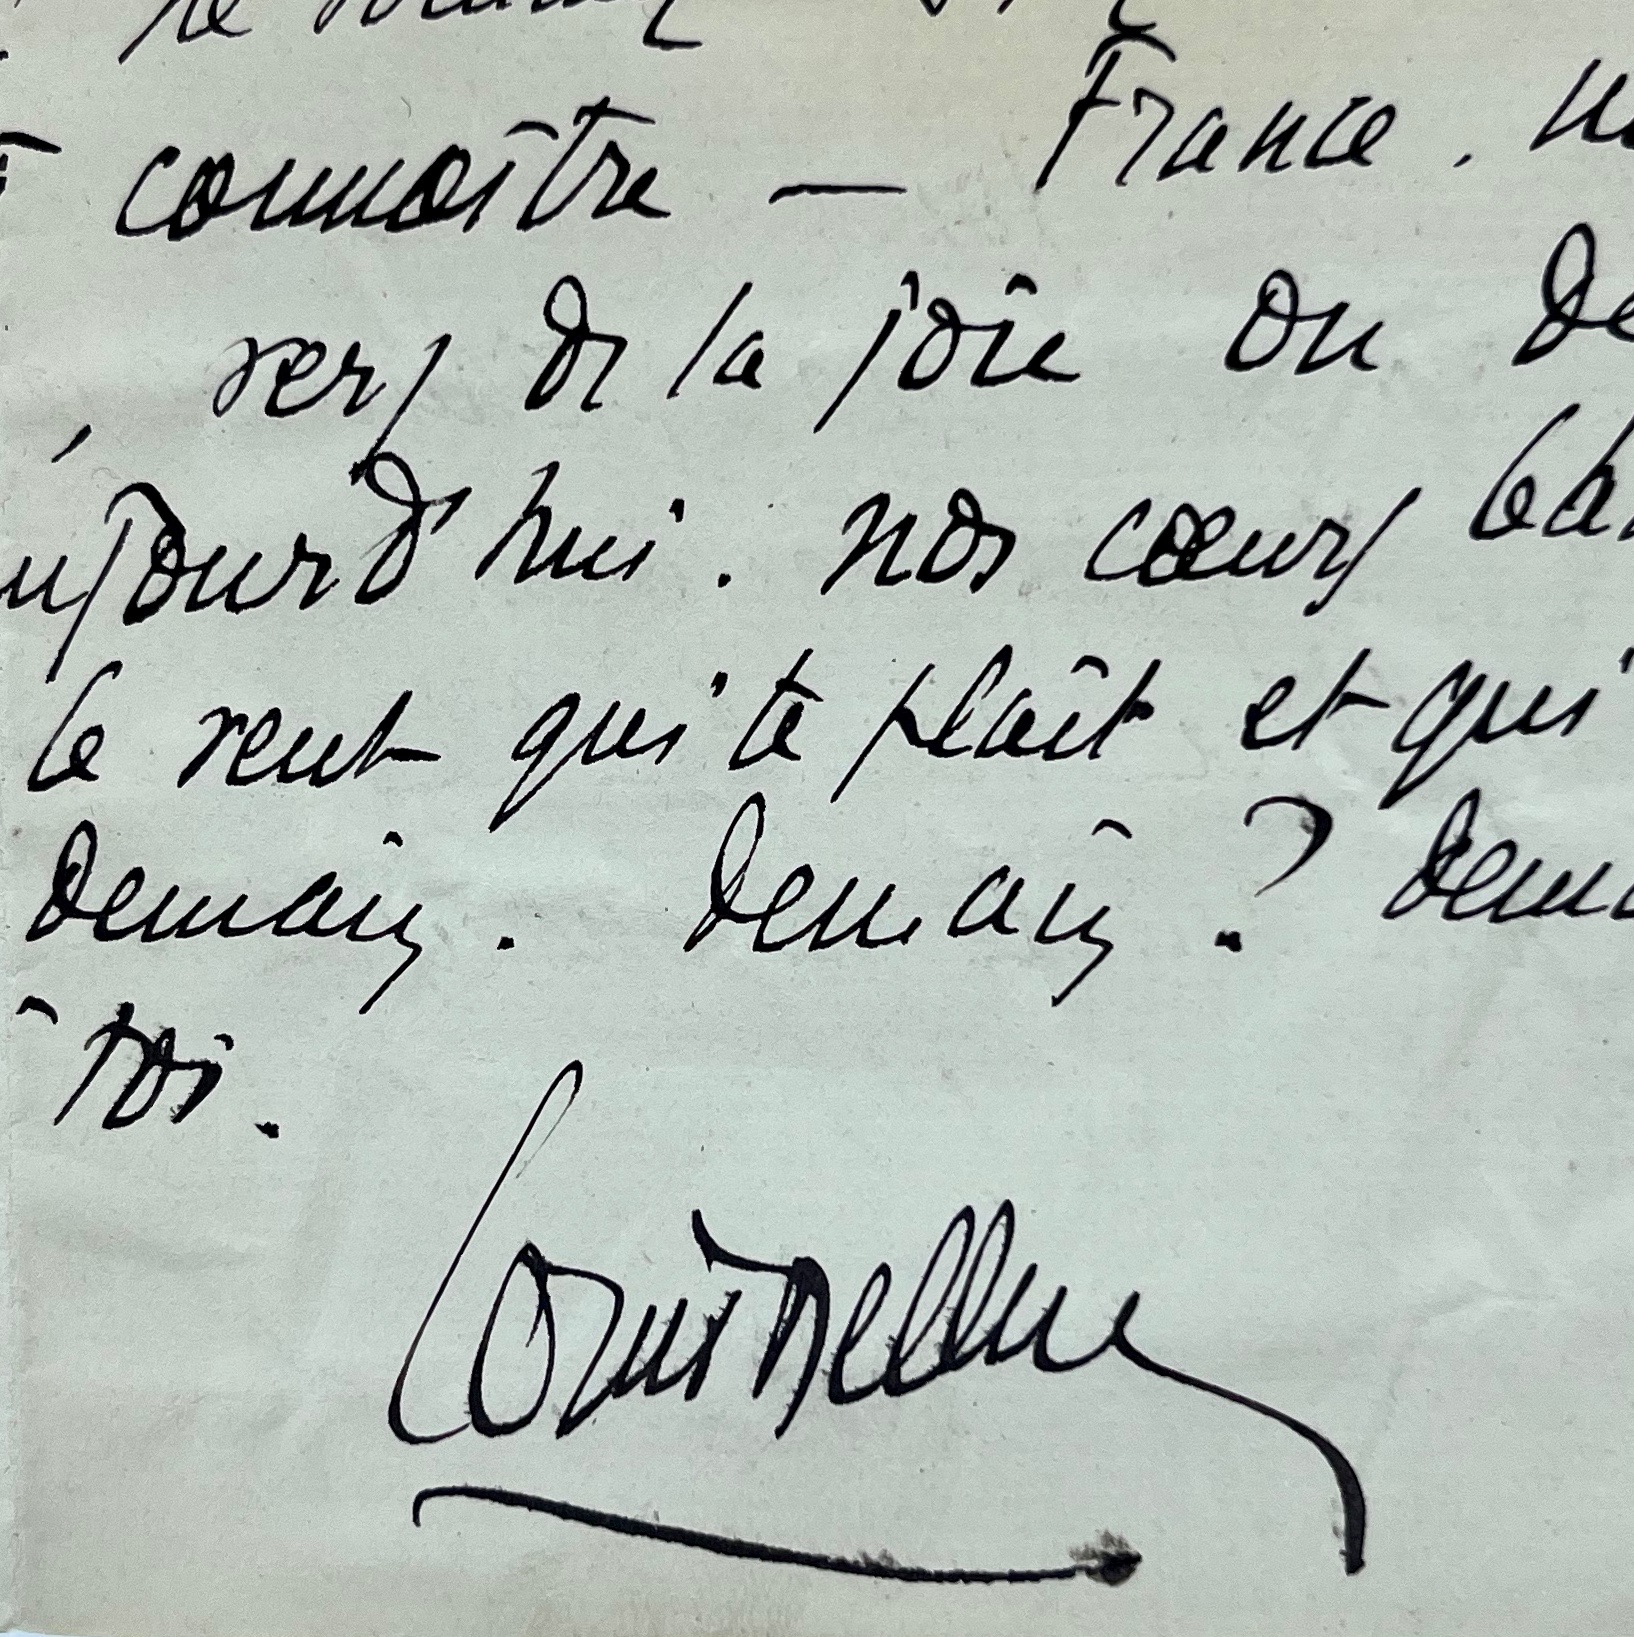 connaître — France.
, vers de la joie ou de
ujourd'hui. nos cœurs
le vent qui te plaît et qui
demain. Demain ? dema
à toi.